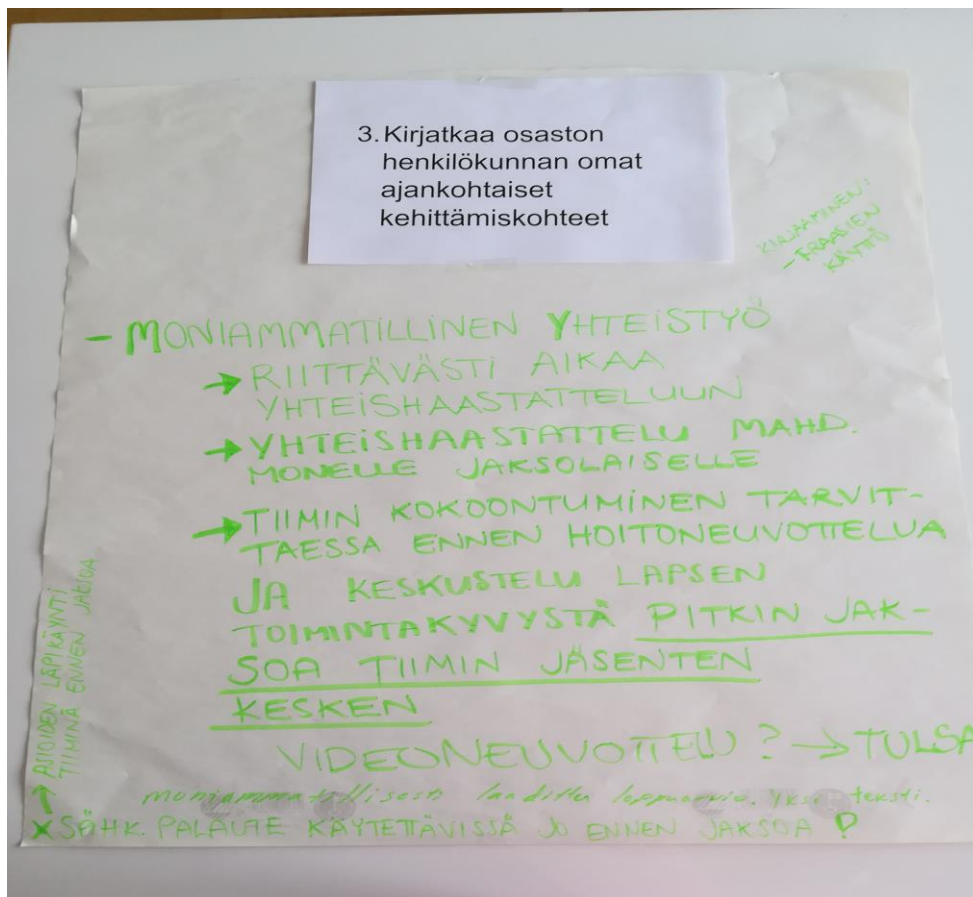 3. Kirjatkaa osaston
henkilökunnan omat
ajankohtaiset
kehittämiskohteet
KIRJAAMINEN:
- FRAASIEN
KÄYTTÖ
- MONIAMMATILLINEN YHTEISTYÖ
→ RIITTÄVÄSTI AIKAA
YHTEISHAASTATTELUUN
→ YHTEISHAASTATTELU MAHD.
MONELLE JAKSOLAISELLE
→ TIIMIN KOKOONTUMINEN TARVIT-
TAESSA ENNEN HOITONEUVOTTELUA
JA KESKUSTELU LAPSEN
TOIMINTAKYVYSTÄ PITKIN JAK-
SOA TIIMIN JÄSENTEN
KESKEN
VIDEONEUVOTTELU? → TULSA
moniammatillisesti laadittu loppuarvio. Yksi teksti.
X SÄHK. PALAUTE KÄYTETTÄVISSÄ JO ENNEN JAKSOA?
→ ASIOIDEN LÄPIKÄYNTI
TIIMINÄ ENNEN JAKSOA